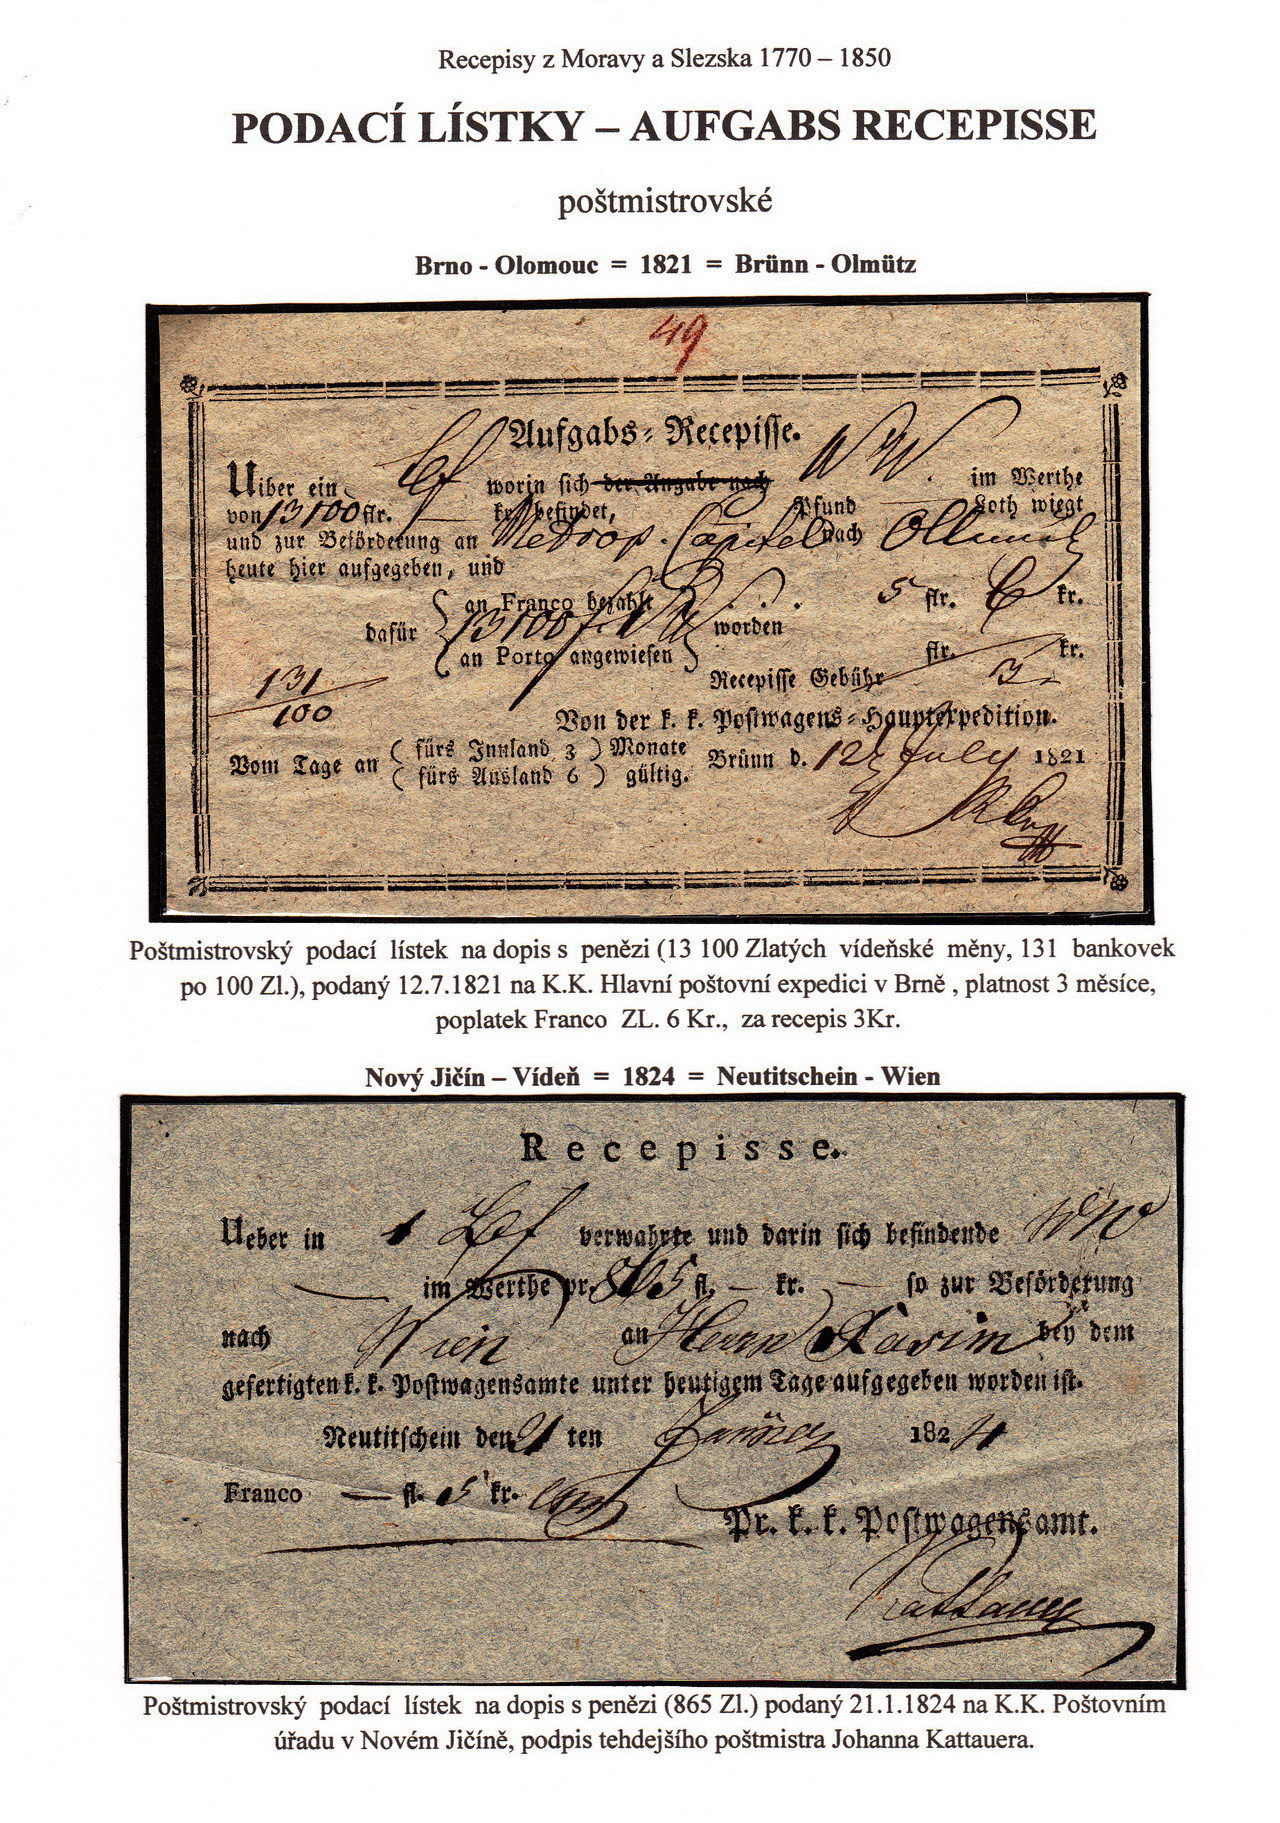 Recepisy z Moravy a Slezska 1770 – 1850
PODACÍ LÍSTKY – AUFGABS RECEPISSE
poštmistrovské
Brno - Olomouc = 1821 = Brünn - Olmütz
49
Aufgabs-Recepisse.
Uiber ein worin sich der Angabe nach WW. im Werthe
von 13100 flr. — kr. befindet, Pfund — Loth wiegt
und zur Beförderung an Metrop. Capitel nach Ollmütz
heute hier aufgegeben, und
an Franco bezahlt . . . 5 flr. 6 kr.
dafür 13100 f worden
an Porto angewiesen flr. kr.
131
Recepisse Gebühr 3
100
Von der k. k. Postwagens-Hauptexpedition.
Vom Tage an ( fürs Innland 3 ) Monate
( fürs Ausland 6 ) gültig.
Brünn d. 12 July 1821
Poštmistrovský podací lístek na dopis s penězi (13 100 Zlatých vídeňské měny, 131 bankovek
po 100 Zl.), podaný 12.7.1821 na K.K. Hlavní poštovní expedici v Brně , platnost 3 měsíce,
poplatek Franco ZL. 6 Kr., za recepis 3Kr.
Nový Jičín – Vídeň = 1824 = Neutitschein - Wien
Recepisse.
Ueber in 1 verwahrte und darin sich befindende WW
— im Werthe pr. 865 fl. — kr. — so zur Beförderung
nach Wien an Herrn bey dem
gefertigten k. k. Postwagensamte unter heutigem Tage aufgegeben worden ist.
Neutitschein den 21 ten 1824
Franco — fl. 5 kr.
Pr. k. k. Postwagensamt.
Kattauer
Poštmistrovský podací lístek na dopis s penězi (865 Zl.) podaný 21.1.1824 na K.K. Poštovním
úřadu v Novém Jičíně, podpis tehdejšího poštmistra Johanna Kattauera.